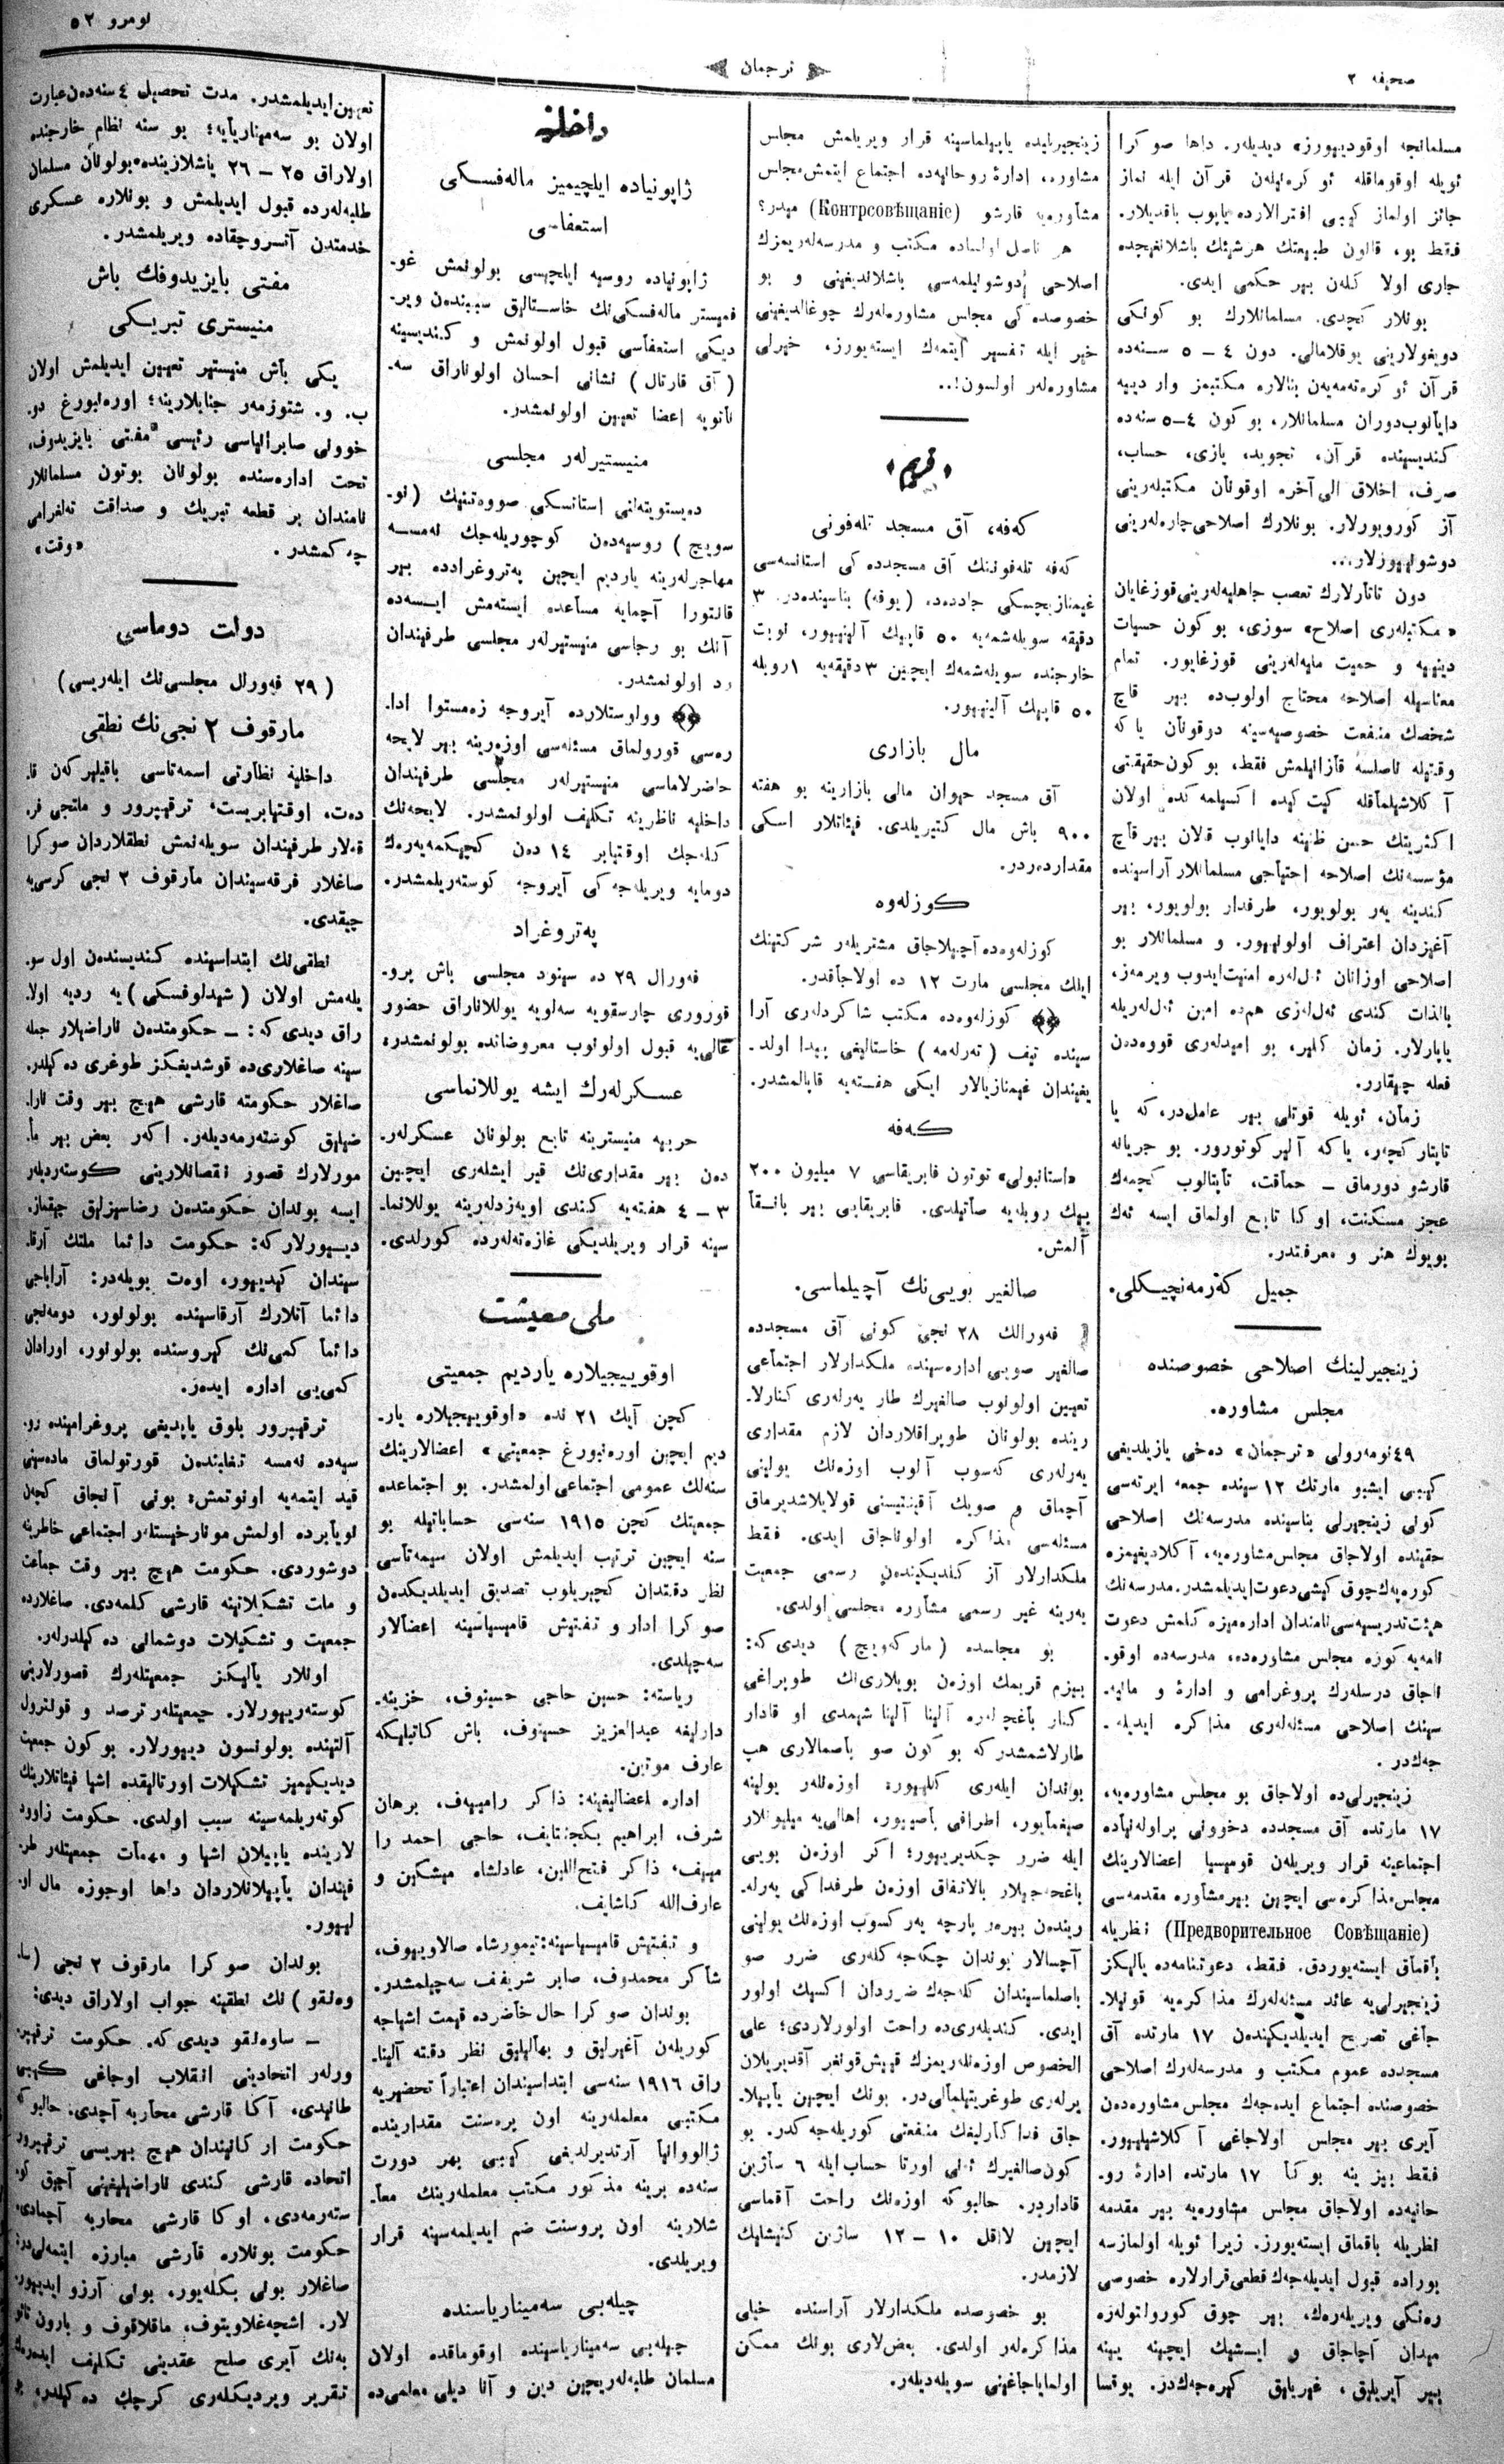 صحیفه ۲
ترجمان
نومرو ۵۲
مسلمانجه اوقودییورز» دیدیلەر. داها صوکرا
ئویله اوقوماقله ئوکرەنیلەن قرآن ایله نماز
جائز اولماز کیبی افترالاردە یاپوب باقدیلار.
فقط بو، قانون طبیعتك هرشیئك باشلانغیجندە
جاری اولا کلەن بیر حکمی ایدی.
بونلار کچدی. مسلمانلارك بو کونکی
دویغولارینی یوقلامالی. دون ٤ – ٥ سـنەدە
قرآن ئوکرەتەمەیەن بنالارە مکتبمز وار دییه
دایانوب‌دوران مسلمانلار، بو کون ٤–٥ سنەدە
کندیسیندە قرآن، تجوید، یازی، حساب،
صرف، اخلاق الی آخرە اوقونان مکتبلەرینی
آز کورویورلار. بونلارك اصلاحی چارەلەرینی
دوشونییورلار...
دون تاتارلارك تعصب جاهلیەلەرینی قوزغایان
«مکتبلەری اصلاح» سوزی، بو کون حسیات
دینییه و حمیت ملیەلەرینی قوزغایور. تمام
معناسیله اصلاحه محتاج اولوب‌دە بیر قاچ
شخصك منفعت خصوصیەسینه دوقونان یاکه
وقتیله ناصلسه قازانیلمش فقط، بو کون حقیقتی
آکلاشیلماقله کیت کیدە اکسیلمەکدە اولان
اکثریتك حسن ظنینه دایانوب قالان بیر قاچ
مؤسسەنك اصلاحه احتیاجی مسلمانلار آراسیندە
کندینه یەر بولویور، طرفدار بولویور، بیر
آغیزدان اعتراف اولونییور. و مسلمانلار بو
اصلاحی اوزانان ئەل‌لەرە امنیت‌ایدوب ویرمەز،
بالذات کندی ئەل‌لەری هم‌دە امین ئەل‌لەریله
یاپارلار. زمان کلیر، بو امیدلەری قووەدەن
فعله چیقارر.
زمان، ئویله قوتلی بیر عامل‌در، که یا
تاپتار کچەر، یاکه آلیر کوتورور. بو جریانه
قارشو دورماق – حماقت، تاپتالوب کچمەك
عجز مسکنت، اوکا تابع اولماق ایسه ئەك
بویوك هنر و معرفتدر.
جمیل کەرمەنچیکلی.
زینجیرلینك اصلاحی خصوصندە
مجلس مشاورە.
٤٩نومەرولی «ترجمان» دەخی یازیلدیغی
کیبی ایشبو مارتك ۱۲ سیندە جمعه ایرتەسی
کونی زینجیرلی بناسیندە مدرسەنك اصلاحی
حقیندە اولاجاق مجلس مشاورەیه، آکلادیغیمزە
کورە پەك‌چوق کیشی دعوت‌ایدیلمشدر. مدرسەنك
هیئت‌تدریسیەسی نامندان ادارەمیزە کلمش دعوت
نامەیه کورە مجلس مشاورەدە، مدرسەدە اوقو-
ناجاق درسلەرك پروغرامی و ادارۀ و مالیە-
سینك اصلاحی مسئلەلەری مذاکرە ایدیلە-
جەکدر.
زینجیرلی‌دە اولاجاق بو مجلس مشاورەیه،
۱۷ مارتدە آق مسجددە دخوونی پراولەنیادە
اجتماعینه قرار ویریلەن قومیسیا اعضالارینك
مجلس‌مذاکرەسی ایچین بیرمشاورە مقدمەسی
(Предворительное Совѣщаніе) نظریله
باقماق ایستەیوردق. فقط، دعوتنامەدە یالیکز
زینجیرلی‌یه عائد مسئلەلەرك مذاکرەیه قونیلا-
جاغی تصریح ایدیلدیکندەن ۱۷ مارتدە آق
مسجددە عموم مکتب و مدرسەلەرك اصلاحی
خصوصندە اجتماع ایدەجەك مجلس مشاورەدەن
آیری بیر مجلس اولاجاغی آکلاشیلیور.
فقط بیز ینه بوکا ۱۷ مارتدە ادارۀ رو-
حانیەدە اولاجاق مجلس مشاورەیه بیر مقدمه
نظریله باقماق ایستەیورز. زیرا ئویله اولمازسه
بورادە قبول ایدیلەجەك‌قطعی‌قرارلارە خصوصی
رەنکی ویریلەرەك، بیر چوق کورولتولەرە
میدان آچاجاق و ایـشیك ایچینه یینه
بیر آیریلیق، غیریلیق کیرەجەکدر. یوقسا
زینجیرلیدە یاپیلماسینه قرار ویریلمش مجلس
مشاورە، ادارۀ روحانیەدە اجتماع ایتمش‌مجلس
مشاورەیه قارشو (Контрсовѣщаніе) میدر؟
هر ناصل اولسادە مکتب و مدرسەلەریمزك
اصلاحی دوشونیلمەسی باشلاندیغینی و بو
خصوصدە کی مجلس مشاورەلەرك چوغالدیغینی
خیر ایله تفسیر ایتمەك ایستەیورز. خیرلی
مشاورەلەر اولسون!..
«قریم»
کەفه، آق مسجد تلەفونی
کەفه تلەفونینك آق مسجددە کی استانسەسی
غیمنازیچسکی جاددەدە، (یوفه) بناسیندەدر. ۳
دقیقه سویلەشمەیه ۵۰ قاپیك آلینییور، نوبت
خارجندە سویلەشمەك ایچین ۳دقیقەیه ۱روبله
۵۰ قاپیك آلینییور.
مال بازاری
آق مسجد حیوان مالی بازارینه بو هفته
۹۰۰ باش مال کتیریلدی. فیئاتلار اسکی
مقداردەدر.
کوزلەوە
کوزلەوەدە آچیلاجاق مشتریلەر شرکتینك
ایلك مجلسی مارت ۱۲ دە اولاجاقدر.
کوزلەوەدە مکتب شاکردلەری آرا
سیندە تیف (تەرلەمه) خاستالیغی پیدا اولد-
یغیندان غیمنازیالار ایکی هفتەیه قاپالمشدر.
کەفه
«استانبولی» توتون فابریقاسی ۷ میلیون ۲۰۰
بیك روبلەیه صاتیلدی. فابریقایی بیر بانـقا
آلمش.
صالغیر بویی‌نك آچیلماسی.
فەورالك ۲۸ نجی کونی آق مسجددە
صالغیر صویی ادارەسیندە ملکدارلار اجتماعی
تعیین اولونوب صالغیرك طار یەرلەری کنارلا-
ریندە بولونان طوپراقلاردان لازم مقداری
یەرلەری کەسوب آلوب اوزەنك یولینی
آچماق و صویك آقینتیسنی قولایلاشدیرماق
مسئلەسی مذاکرە اولوناجاق ایدی. فقط
ملکدارلار آز کلدیکیندەن رسمی جمعیت
یەرینه غیر رسمی مشاورە مجلسی اولدی.
بو مجلسدە (مارکەویچ) دیدی‌که:
بیزم قریمك اوزەن بویلاری‌نك طوپراغی
کنار باغچەلەرە آلینا آلینا شیمدی او قادار
طارلاشمشدرکه بو کون صو باصمالاری هپ
بوندان ایلەری کلییور، اوزەنلەر یولینه
صیغمایور، اطرافی باصییور، اهالی‌یه میلیونلار
ایله ضرر چکدیرییور؛ اکر اوزەن بویی
باغچەجیلار بالاتفاق اوزەن طرفداکی یەرلە-
ریندەن بیرەر پارچه یەر کسوب اوزەنك یولینی
آچسالار بوندان چکەجەکلەری ضرر صو
باصلماسیندان کلەجەك ضرردان اکسیك اولور
ایدی. کندیلەری‌دە راحت اولورلاردی؛ علی
الخصوص اوزەنلەریمزك قییش‌قونغر آقدیریلان
یرلەری طوغریتیلمالی‌در. بونك ایچین یاپیلا-
جاق فداکارلیغك منفعتی کوریلەجەکدر. بو
کون‌صالغیرك ئەنی اورتا حساب‌ایله ٦ ساژین
قاداردر. حالبوکه اوزەنك راحت آقماسی
ایچین لااقل ۱۰ – ۱۲ ساژین کنیشلیك
لازمدر.
بو خصوصدە ملکدارلار آراسندە خیلی
مذاکرەلەر اولدی. بعض‌لاری بونك ممکن
اولمایاجاغینی سویلەدیلەر.
داخلیه
ژاپونیادە ایلچیمیز مالەفسکی
استعفاسی
ژاپونیادە روسیه ایلچیسی بولونمش غو-
فمیستر مالەفسکی‌نك خاستالیق سببندەن ویر-
دیکی استعفاسی قبول اولونمش و کندیسینه
(آق قارتال) نشانی احسان اولوناراق سە-
ناتویه اعضا تعیین اولونمشدر.
منیستیرلەر مجلسی
دەیستویتەلنی استاتسکی صووەتنیك (نو-
سویچ) روسیەدەن کوچوریلەجك نەمسـه
مهاجرلەرینه یاردیم ایچین پەتروغراددە بیر
قانتورا آچمایه مساعدە ایستەمش ایـسەدە
آنك بو رجاسی منیستیرلەر مجلسی طرفیندان
رد اولونمشدر.
وولوستلاردە آیروجه زەمستوا ادا-
رەسی قورولماق مسئلەسی اوزەرینه بیر لایحه
حاضرلاماسی منیستیرلەر مجلسی طرفیندان
داخلیه ناظرینه تکلیف اولونمشدر. لایحەنك
کلەجك اوقتیابر ۱٤ دەن کچیکمەیەرەك
دومایه ویریلەجەکی آیروجه کوستەریلمشدر.
پەتروغراد
فەورال ۲۹ دە سینود مجلسی باش پرو-
قوروری چارسقویه سەلویه یوللاناراق حضور
عالی‌یه قبول اولونوب معروضاندە بولونمشدر،
عسکرلەرك ایشه یوللانماسی
حربیه منیسترینه تابع بولونان عسکرلەر-
دەن بیر مقداری‌نك قیر ایشلەری ایچین
۳ – ٤ هفتەیه کندی اویەزدلەرینه یوللانما-
سینه قرار ویریلدیکی غازەتەلەردە کورلدی.
ملی معیشت
اوقوییجیلارە یاردیم جمعیتی
کچن آیك ۲۱ ندە «اوقوییجیلارە یار-
دیم ایچین اورەنبورغ جمعیتی» اعضالارینك
سنەلك عمومی اجتماعی اولمشدر. بو اجتماعدە
جمعیتك کچن ۱۹۱۵ سنەسی حساباتیله بو
سنه ایچین ترتیب ایدیلمش اولان سیمەتاسی
نظر دقتدان کچیریلوب تصدیق ایدیلدیکدەن
صوکرا ادار و تفتیش قامیسیاسینه اعضالار
سەچیلدی.
ریاسته: حسین حاجی حسینوف، خزینە-
دارلیغه عبدالعزیز حسینوف، باش کاتبلیکه
عارف موتین.
ادارە اعضالیغینه: ذاکر رامییەف، برهان
شرف، ابراهیم بکچنتایف، حاجی احمد را
مییف، ذاکر فتح‌اللین، عادلشاە میشکین و
عارف‌الله کاشایف.
و تفتیش قامیسیاسینه:تیمورشاە صالاوییوف،
شاکر محمدوف، صابر شریفف سەچیلمشدر.
بوندان صوکرا حال حاضردە قیمت اشیاجه
کوریلەن آغیرلیق و بهالیلیق نظر دقته آلینا-
راق ۱۹۱٦ سنەسی ابتداسیندان اعتباراً تحضیریه
مکتبی معلملەرینه اون پرسنت مقداریندە
ژالووانیا آرتدیرلدیغی کیبی بهر دورت
سنەدە برینه مذکور مکتب معلملەرینك معا-
شلارینه اون پروسنت ضم ایدیلمەسینه قرار
ویریلدی.
چیلەبی سەمیناریاسندە
چیلەبی سەمیناریاسیندە اوقوماقدە اولان
مسلمان طلبەلەریچین دین و آنا دیلی معلمی‌دە
تعیین‌ایدیلمشدر. مدت تحصیل ٤ سنەدەن‌عبارت
اولان بو سەمیناریایه؛ بو سنه نظام خارجندە
اولاراق ۲۵ – ۲٦ یاشلاریندە بولونان مسلمان
طلبەلەردە قبول ایدیلمش و بونلارە عسکری
خدمتدن آتسروچقادە ویریلمشدر.
مفتی بایزیدوفك باش
منیستری تبریکی
یکی باش منیستیر تعیین ایدیلمش اولان
ب. و. شتورمەر جنابلارینه؛ اورەنبورغ دو-
خوونی صابرانیاسی رئیسی مفتی بایزیدوف،
تحت ادارەسندە بولونان بوتون مسلمانلار
نامندان بر قطعه تبریك و صداقت تەلغرامی
چەکمشدر. «وقت»
دولت دوماسی
(۲۹ فەورال مجلسی‌نك ایلەریسی)
مارقوف ۲ نجی‌نك نطقی
داخلیه نظارتی اسمەتاسی باقیلیرکەن قا-
دەت، اوقتیابریست، ترقیپرور و ملتجی فر-
قەلار طرفیندان سویلەنمش نطقلاردان صوکرا
صاغلار فرقەسیندان مارقوف ۲ نجی کرسی‌یه
چیقدی.
نطقی‌نك ابتداسیندە کندیسندەن اول سو-
یلەمش اولان (شیدلوفسکی) یه ردیه اولا-
راق دیدی که: – حکومتدەن ناراضیلار جمله
سینه صاغلاری‌دە قوشدیغکز طوغری دەکلدر.
صاغلار حکومته قارشی هیچ بیر وقت نارا-
ضیلق کوستەرمەدیلەر. اکەر بعض بیر مأ-
مورلارك قصور نقصانلارینی کوستەردیلەر
ایسه بوندان حکومتدەن رضاسیزلیق چیقماز.
دییورلارکه: حکومت دائما ملتك آرقا-
سیندان کیدییور، اوەت بویلەدر: آراباجی
دائما آتلارك آرقاسیندە بولونور، دومەنجی
دائما کمی‌نك کیروسندە بولونور، اورادان
کمی‌یی ادارە ایدەر.
ترقیپرور بلوق یاپدیغی پروغرامیندە رو-
سیەدە نەمسه تغلبندەن قورتولماق مادەسینی
قید ایتمەیه اونوتمش؛ بونی آنجاق کچەن
نویابردە اولمش مونارخیستلەر اجتماعی خاطرینه
دوشوردی. حکومت هیچ بیر وقت جماعت
و ملت تشکیلاتینه قارشی کلمەدی. صاغلاردە
جمعیت و تشکیلات دوشمانی دەکیلدرلەر.
اونلار یالیکز جمعیتلەرك قصورلارینی
کوستەرییورلار. جمعیتلەر ترصد و قونترول
آلتیندە بولونسون دییورلار. بو کون جمعیت
دیدیکیمیز تشکیلات اورتالیقدە اشیا فیئاتلارینك
کوتەریلمەسینه سبب اولدی. حکومت زاوود
لاریندە یاپیلان اشیا و مهمات جمعیتلەر طر-
فیندان یاپیلانلاردان داها اوجوزە مال او-
لییور.
بوندان صوکرا مارقوف ۲ نجی (سا-
وەنقو) نك نطقینه جواب اولاراق دیدی:
– ساوەنقو دیدی که. حکومت ترقیپر-
ورلەر اتحادینی انقلاب اوجاغی کیبی
طانیدی، آکا قارشی محاربه آچدی. حالبوکه
حکومت ارکانیندان هیچ بیریسی ترقیپرور
اتحادە قارشی کندی ناراضیلیغینی آچیق کو-
ستەرمەدی، اوکا قارشی محاربه آچمادی،
حکومت بونلارە قارشی مبارزە ایتمەلی‌در؛
صاغلار بونی بکلەیور، بونی آرزو ایدییور-
لار. اشچەغلاویتوف، ماقلاقوف و بارون تاو
بەنك آیری صلح عقدینی تکلیف ایدەرەك
تقریر ویردیکلەری کرچك دەکیلدر،